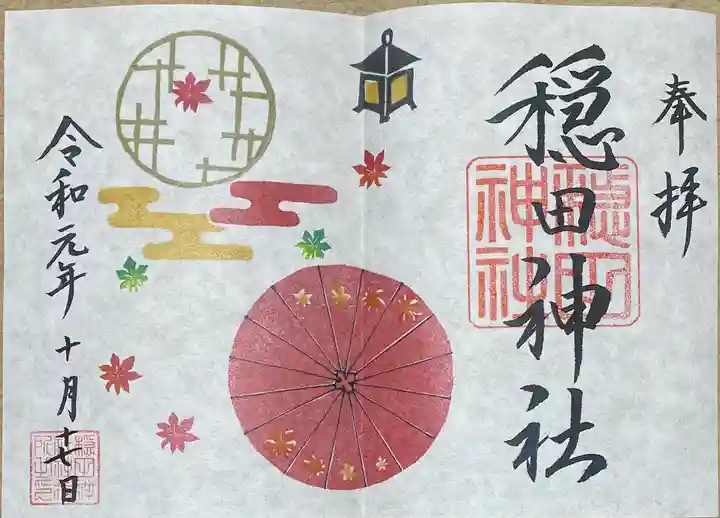 奉拝
穏田神社
穏田神社
令和元年十月十七日